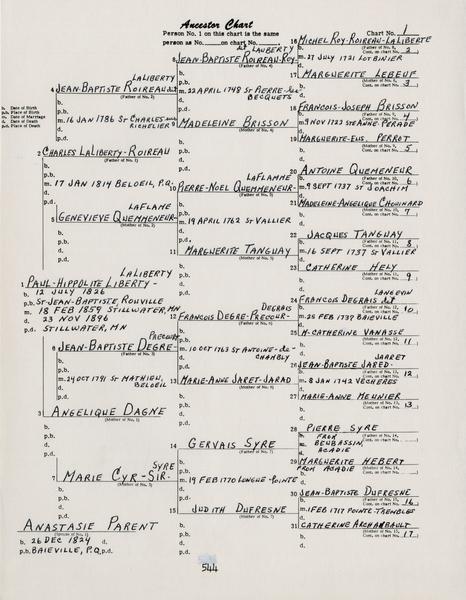 Ancestor Chart
Person No. 1 on this chart is the same
person as No. ___ on chart No. ___.
Chart No. 1
b. Date of Birth
p.b. Place of Birth
m. Date of Marriage
d. Date of Death
p.d. Place of Death
1 PAUL-HIPPOLITE LIBERTY - LALIBERTY
b. 12 JULY 1826
p.b. ST-JEAN-BAPTISTE, ROUVILLE
m. 18 FEB 1859 STILLWATER, MN
d. 23 NOV 1886
p.d. STILLWATER, MN
2 CHARLES LALIBERTY-ROIREAU
(Father of No. 1)
b.
p.b.
m. 17 JAN 1814 BELOEIL, P.Q.
d.
p.d.
3 ANGELIQUE DAGNE
(Mother of No. 1)
b.
p.b.
d.
p.d.
4 JEAN-BAPTISTE ROIREAU dit LALIBERTY
(Father of No. 2)
b.
p.b.
m. 16 JAN 1786 ST CHARLES-sur-RICHELIER
d.
p.d.
5 GENEVIEVE QUEMMENEUR- LAFLAME
(Mother of No. 2)
b.
p.b.
d.
p.d.
6 JEAN-BAPTISTE DEGRE- PRECOUR
(Father of No. 3)
b.
p.b.
m. 24 OCT 1791 ST MATHIEU, BELOEIL
d.
p.d.
7 MARIE CYR-SIR- SYRE
(Mother of No. 3)
b.
p.b.
d.
p.d.
8 JEAN-BAPTISTE ROIREAU-ROY dit LALIBERTY
(Father of No. 4)
b.
m. 22 APRIL 1748 ST PIERRE-les-BECQUETS
d.
9 MADELEINE BRISSON
(Mother of No. 4)
b.
d.
10 PIERRE-NOEL QUEMMENEUR- LAFLAMME
(Father of No. 5)
b.
m. 19 APRIL 1762 ST VALLIER
d.
11 MARGUERITE TANGUAY
(Mother of No. 5)
b.
d.
12 FRANCOIS DEGRE-PRECOUR- DEGRAIS
(Father of No. 6)
b.
m. 10 OCT 1763 ST ANTOINE-de-CHAMBLY
d.
13 MARIE-ANNE JARET-JARAD
(Mother of No. 6)
b.
d.
14 GERVAIS SYRE
(Father of No. 7)
b.
m. 19 FEB 1770 LONGUE-POINTE
d.
15 JUDITH DUFRESNE
(Mother of No. 7)
b.
d.
16 MICHEL ROY-ROIREAU-LALIBERTE
(Father of No. 8, Cont. on chart No. 2)
m. 27 JULY 1721 LOTBINIER
17 MARGUERITE LEBEUF
(Mother of No. 8, Cont. on chart No. 3)
18 FRANCOIS-JOSEPH BRISSON
(Father of No. 9, Cont. on chart No. 4)
m. 3 NOV 1722 STE ANNE-PERADE
19 MARGUERITE-ELIS. PERROT
(Mother of No. 9, Cont. on chart No. 5)
20 ANTOINE QUEMENEUR
(Father of No. 10, Cont. on chart No. 6)
m. 9 SEPT 1737 ST JOACHIM
21 MADELEINE-ANGELIQUE CHOUINARD
(Mother of No. 10, Cont. on chart No. 7)
22 JACQUES TANGUAY
(Father of No. 11, Cont. on chart No. 8)
m. 16 SEPT 1737 ST VALLIER
23 CATHERINE HELY
(Mother of No. 11, Cont. on chart No. 9)
24 FRANCOIS DEGRAIS dit LANGEVIN
(Father of No. 12, Cont. on chart No. 10)
m. 25 FEB 1737 BAIEVILLE
25 M-CATHERINE VANASSE
(Mother of No. 12, Cont. on chart No. 11)
26 JEAN-BAPTISTE JARED- JARRET
(Father of No. 13, Cont. on chart No. 12)
m. 8 JAN 1742 VECHERES
27 MARIE-ANNE MEUNIER
(Mother of No. 13, Cont. on chart No. 13)
28 PIERRE SYRE
(Father of No. 14, Cont. on chart No. ___)
m. FROM BEAUBASSIN, ACADIE
29 MARGUERITE HEBERT
FROM ACADIE
(Mother of No. 14, Cont. on chart No. ___)
30 JEAN-BAPTISTE DUFRESNE
(Father of No. 15, Cont. on chart No. 16)
m. 1 FEB 1717 POINTE-TREMBLES
31 CATHERINE ARCHAMBAULT
(Mother of No. 15, Cont. on chart No. 17)
ANASTASIE PARENT
(Spouse of No. 1)
b. 26 DEC 1824 d.
p.b. BAIEVILLE, P.Q. p.d.
544